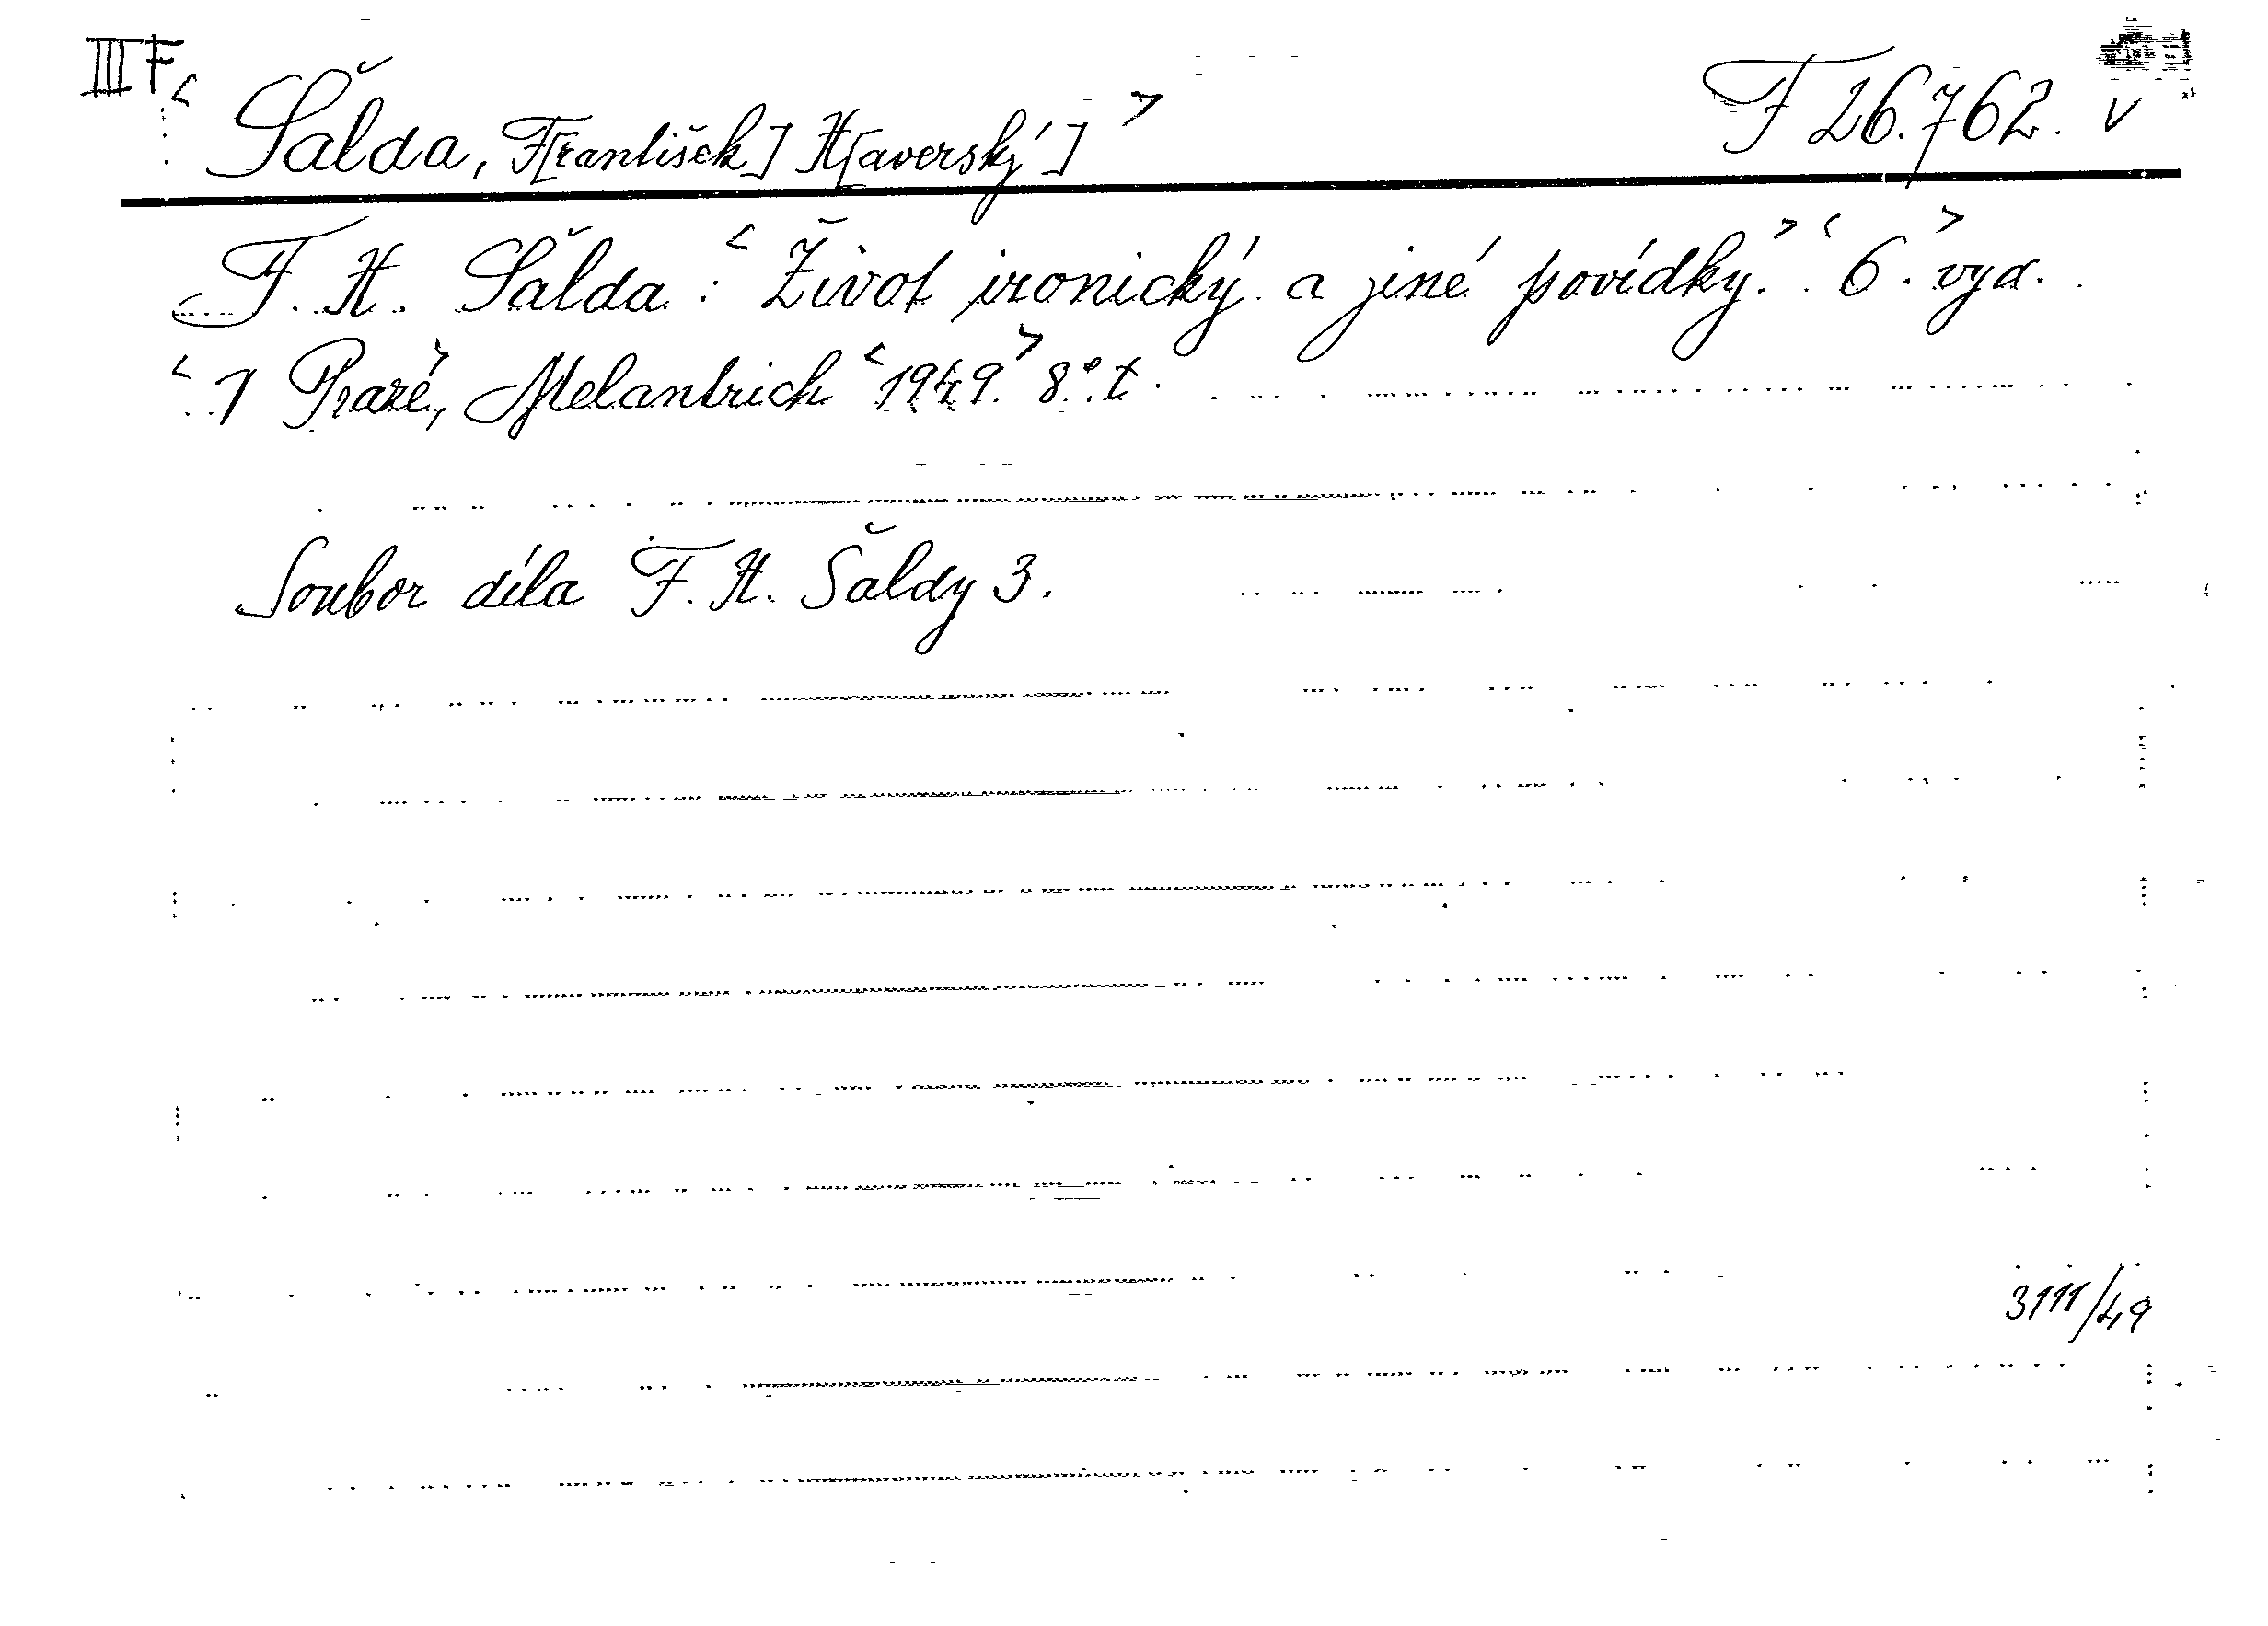 III F
<Šalda, F[rantišek] H[averský]> F 26.762. v
F. H. Šalda: <Život ironický a jiné povídky.> <6.> vyd.
<V Praze>, Melantrich <1949.> 8°. t.
Soubor díla F. H. Šaldy 3.
3111/49